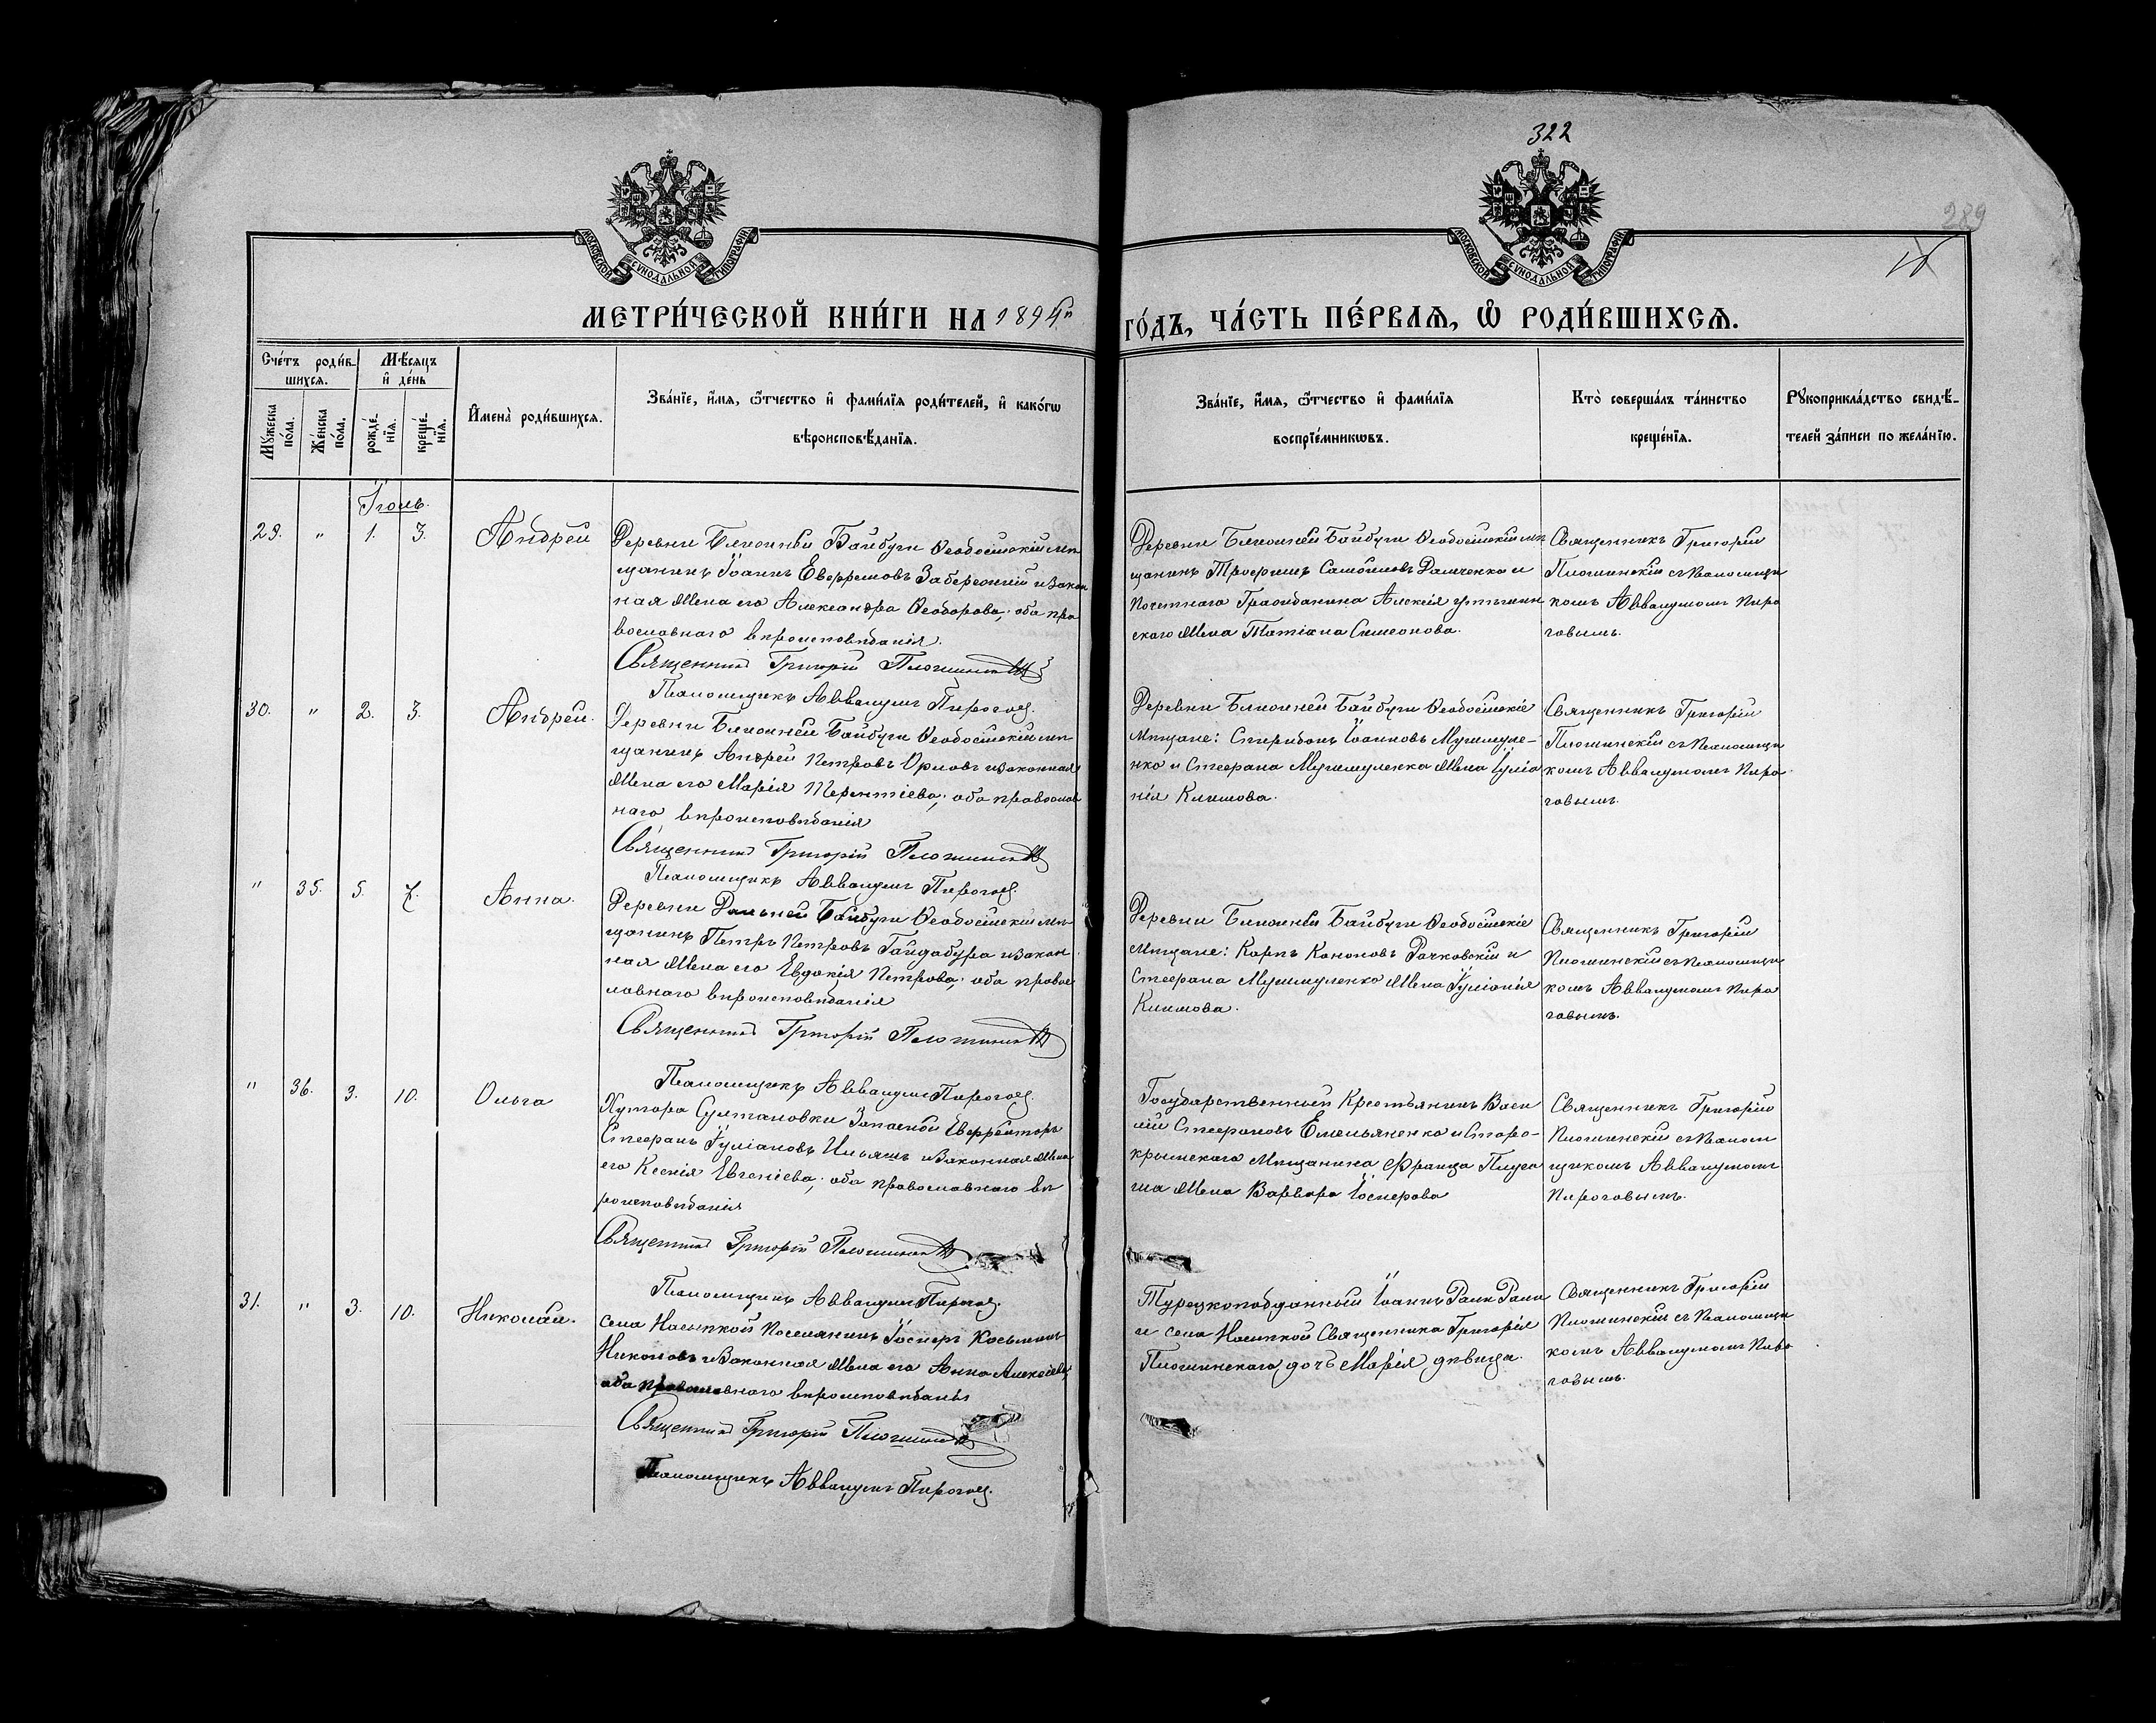 322
289
МОСКОВСКОЙ СУНОДАЛЬНОЙ ТИПОГРАФІИ
МОСКОВСКОЙ СУНОДАЛЬНОЙ ТИПОГРАФІИ
МЕТРИ́ЧЕСКОЙ КНИ́ГИ НА 1894й
ГО́ДЪ, ЧА́СТЬ ПЕ́РВАЯ, Ѡ РОДИ́ВШИХСЯ.
Сче́тъ роди́в-
шихся.
Мѣсяцъ
и де́нь
Мꙋжеска по́ла.
Же́нска по́ла.
рожде́-
нїя.
креще́-
нїя.
И҆мена̀ роди́вшихся.
Зва́нїе, и҆́мя, ѻ҆́тчество и҆ фами́лїя роди́телей, и҆ како́гѡ
вѣроисповѣ́данїя.
Зва́нїе, и҆́мя, ѻ҆́тчество и҆ фами́лїя
воспрїе́мникѡвъ.
Кто̀ соверша́лъ та́инство
креще́нїя.
Рꙋкоприкла́дство свидѣ́-
телей за́писи по жела́нїю.
Іюль.
29. " 1. 3. Андрей
Деревни Ближней Байбуги Ѳеодосійскій мѣ
щанинъ Іоаннъ Евфремовъ Забережний и закон
ная жена его Александра Ѳеодорова; оба пра
вославнаго вѣроисповѣданія.
Священникъ Григорій Плошинскій
Псаломщикъ Аввакумъ Пироговъ.
Деревни Ближней Байбуги Ѳеодосійскій мѣ
щанинъ Трофимъ Самойловъ и
Почетнаго Гражданина Алексія
скаго жена Татіана Симеонова.
Священникъ Григорій
Плошинскій съ Псаломщи
комъ Аввакумомъ Пиро
говымъ.
30. " 2. 3. Андрей.
Деревни Ближней Байбуги Ѳеодосійскій мѣ
щанинъ Андрей Петровъ Орловъ и законная
жена его Марія Терентіева; оба православ
наго вѣроисповѣданія
Священникъ Григорій Плошинскій
Псаломщикъ Аввакумъ Пироговъ.
Деревни Ближней Байбуги Ѳеодосійскіе
Мѣщане: Спиридонъ Іоанновъ Мушмуле-
нко и Стефана Мушмуленка жена Іуліа
нія Климова.
Священникъ Григорій
Плошинскій съ Псаломщи
комъ Аввакумомъ Пиро
говымъ.
" 35. 5. 7. Анна.
Деревни Дальней Байбуги Ѳеодосійскій мѣ-
щанинъ Петръ Петровъ Гайдабура и закон
ная жена его Евдокія Петрова; оба правос
лавнаго вѣроисповѣданія
Священникъ Григорій Плошинскій
Псаломщикъ Аввакумъ Пироговъ.
Деревни Ближней Байбуги Ѳеодосійскіе
Мѣщане: Карпъ Кононовъ Рачковскій и
Стефана Мушмуленко жена Іуліанія
Климова.
Священникъ Григорій
Плошинскій съ Псаломщи
комъ Аввакумомъ Пиро
говымъ.
" 36. 3. 10. Ольга
Хутора Султановки Запасный Ефрейторъ
Стефанъ Іуліановъ Ильяшъ и Законная жена
его Ксенія Евгеніева; оба православнаго вѣ
роисповѣданія
Священникъ Григорій Плошинскій
Псаломщикъ Аввакумъ Пироговъ.
Государственный Крестьянинъ Васи
лій Стефановъ Емельяненко и Старо-
крымскаго Мѣщанина Франца
жена Варвара Іосифова
Священникъ Григорій
Плошинскій съ Псалом
щикомъ Аввакумомъ
Пироговымъ.
31. " 3. 10. Николай.
Села Насыпкой Поселянинъ Іосифъ Косьминъ
Николовъ и Законная жена его Анна Алексіева
оба православнаго вѣроисповѣданія
Священникъ Григорій Плошинскій
Псаломщикъ Аввакумъ Пироговъ.
Турецкоподданный Іоаннъ
и села Насыпкой Священника Григорія
Плошинскаго дочь Марія, дѣвица.
Священникъ Григорій
Плошинскій съ Псаломщи
комъ Аввакумомъ Пиро
говымъ.